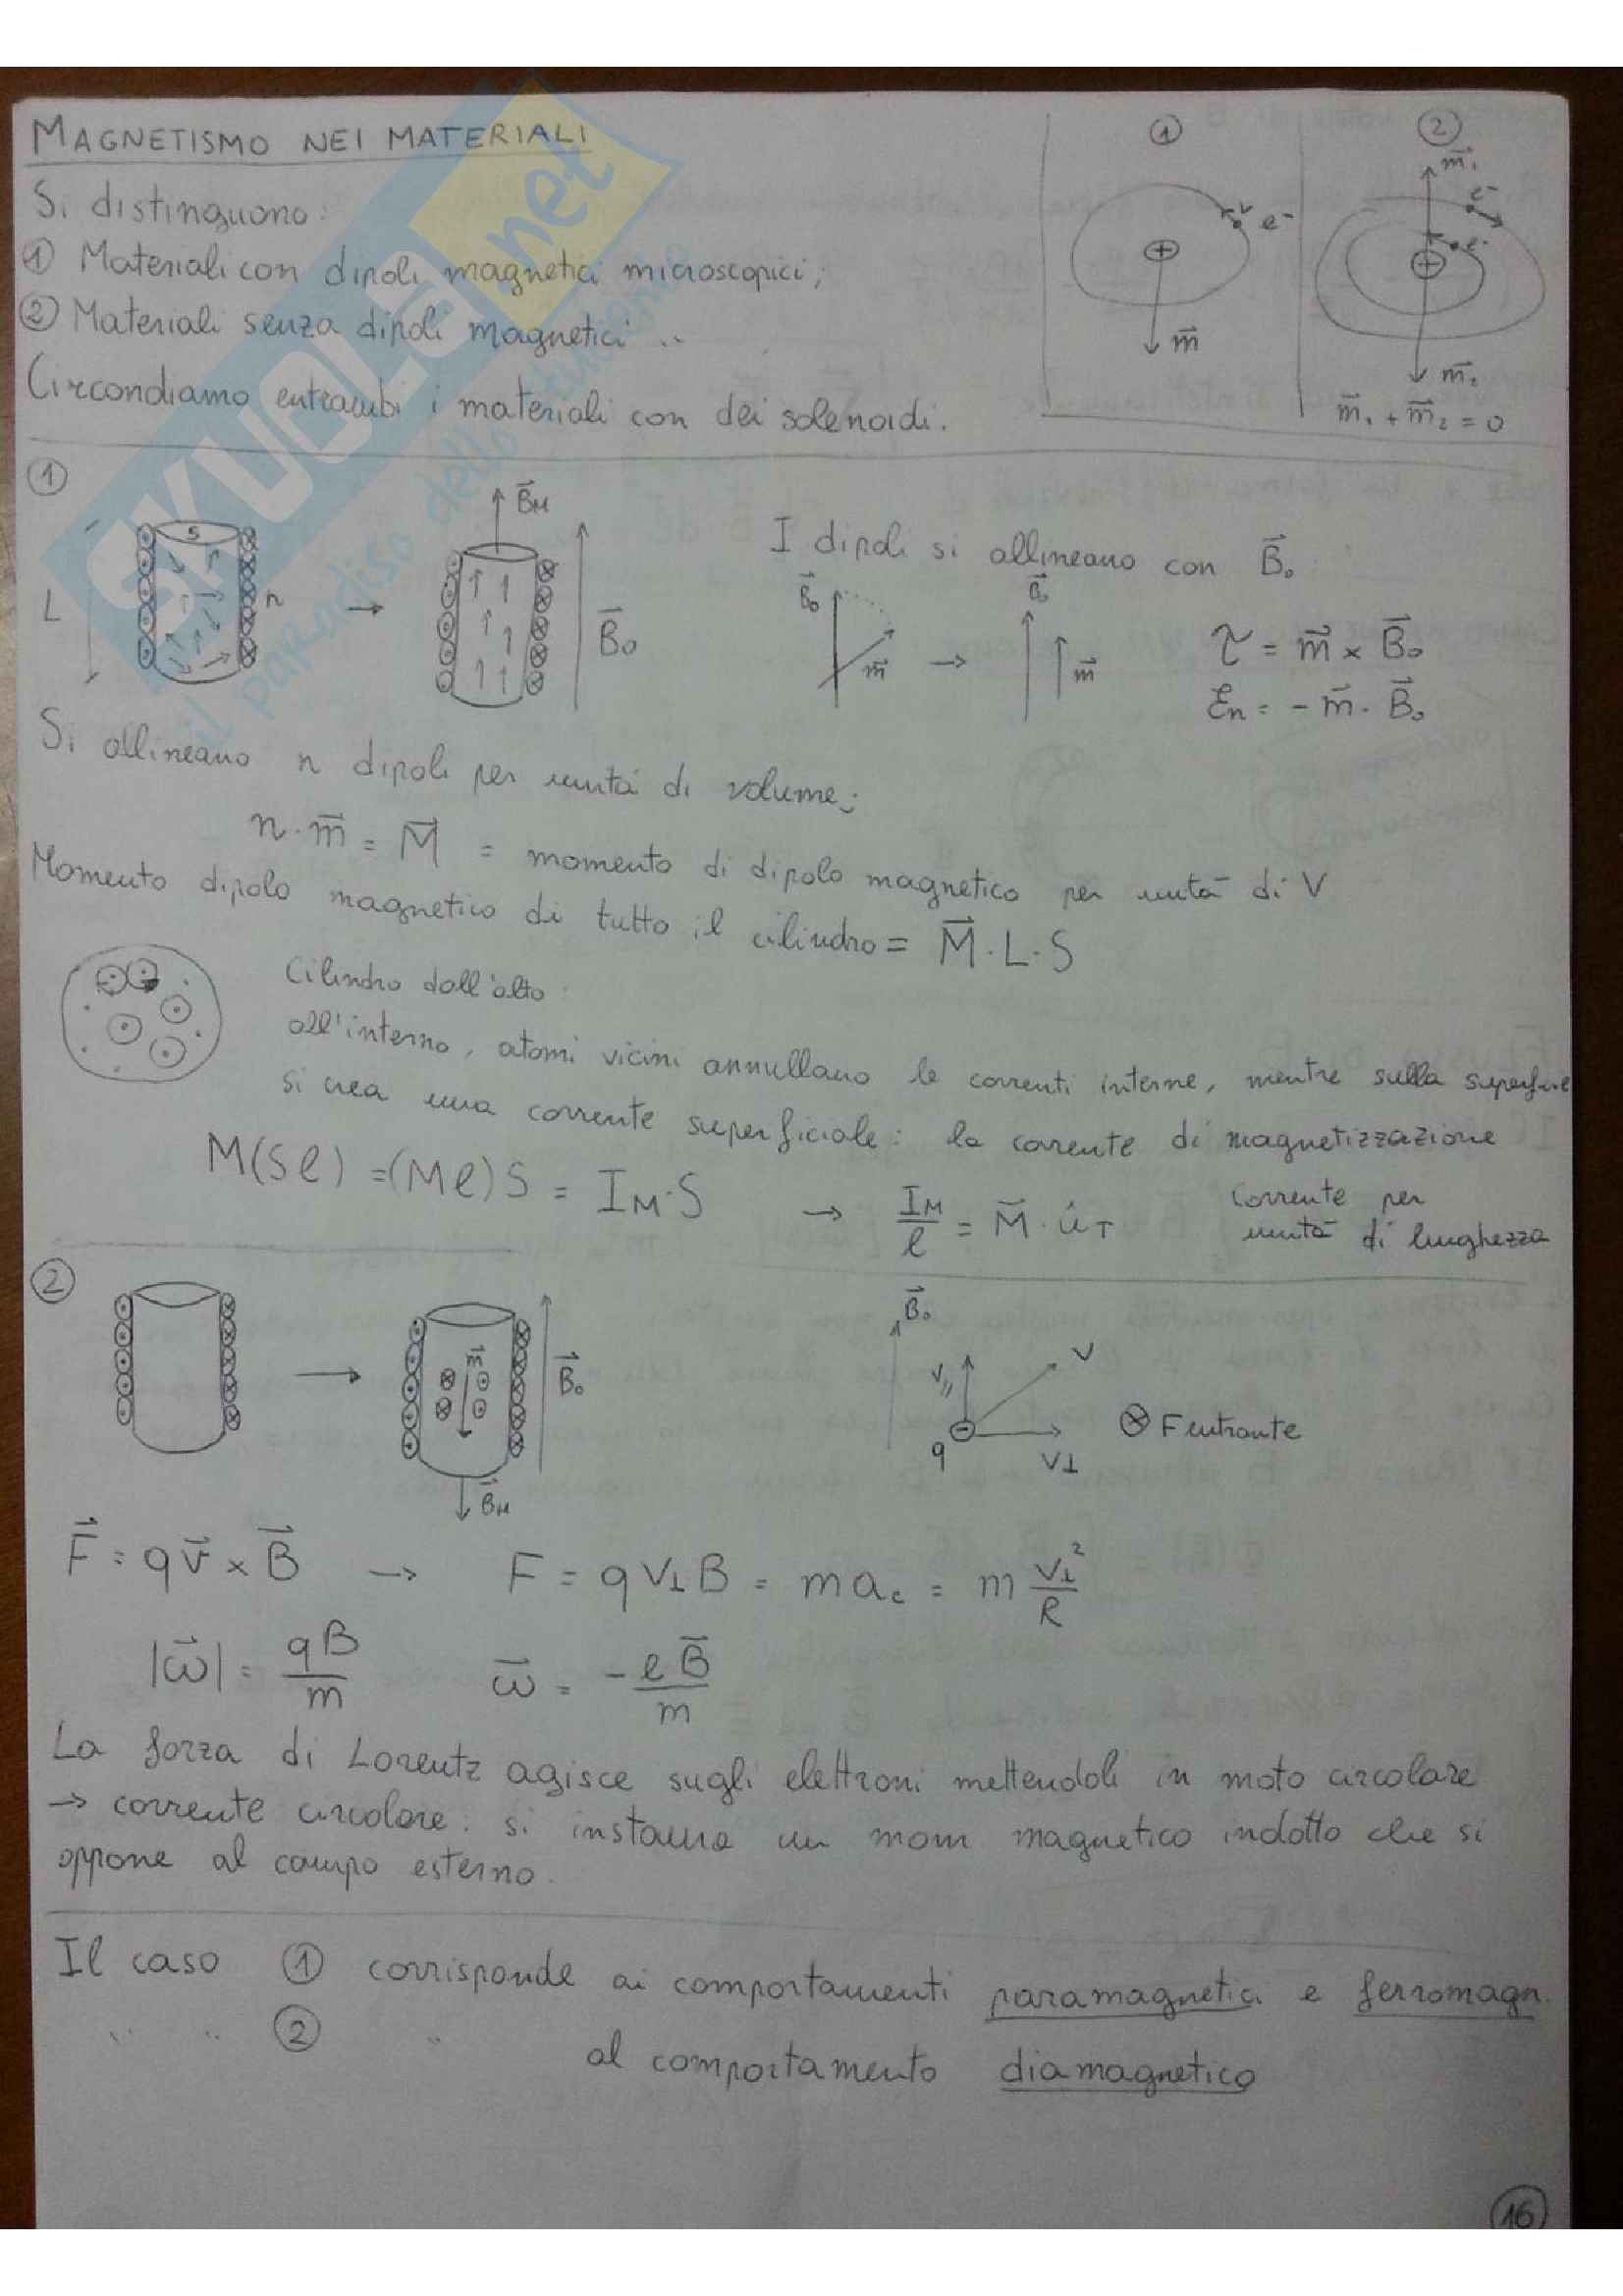 MAGNETISMO NEI MATERIALI
Si distinguono:
① Materiali con dipoli magnetici microscopici;
② Materiali senza dipoli magnetici ..
Circondiamo entrambi i materiali con dei solenoidi.
①
e⁻
v
+
m⃗
②
m⃗₁
e⁻
e⁻
+
m⃗₂
m⃗₁ + m⃗₂ = 0
①
L
S
n
→
B⃗M
B⃗₀
I dipoli si allineano con B⃗₀
B⃗₀
m⃗
→
B⃗₀
m⃗
τ = m⃗ × B⃗₀
En = - m⃗ · B⃗₀
Si allineano n dipoli per unità di volume;
n · m⃗ = M⃗ = momento di dipolo magnetico per unità di V
Momento dipolo magnetico di tutto il cilindro = M⃗ · L · S
Cilindro dall'alto:
all'interno, atomi vicini annullano le correnti interne, mentre sulla superficie
si crea una corrente superficiale: la corrente di magnetizzazione
M(Sl) = (Ml)S = IM · S → IM/l = M⃗ · ûT corrente per
unità di lunghezza
②
→
m⃗
B⃗₀
B⃗M
B⃗₀
v∥
v
q
v⊥
⊗ F entrante
F⃗ = qv⃗ × B⃗ → F = qv⊥B = mac = m v⊥²/R
|ω⃗| = qB/m ω⃗ = - eB⃗/m
La forza di Lorentz agisce sugli elettroni mettendoli in moto circolare
→ corrente circolare: si instaura un mom magnetico indotto che si
oppone al campo esterno.
Il caso ① corrisponde ai comportamenti paramagnetici e ferromagn.
" " ② " al comportamento diamagnetico
16
SKUOLA.net
il paradiso dello studente